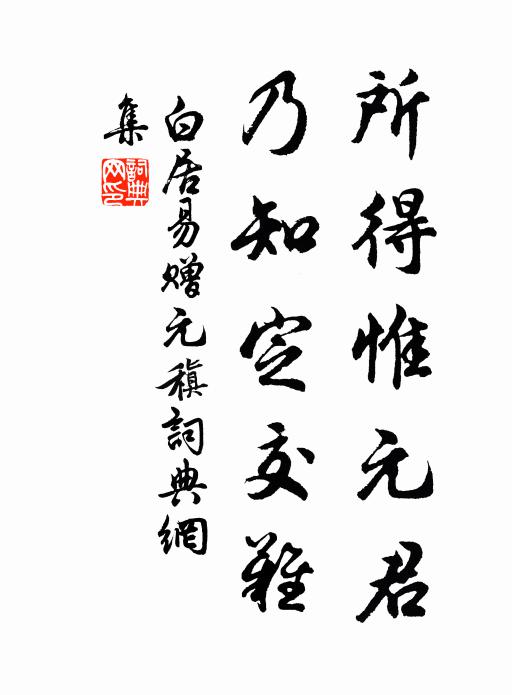 所得惟元君
乃知定交難
白居易贈元稹詞典網
集
詞典
网印